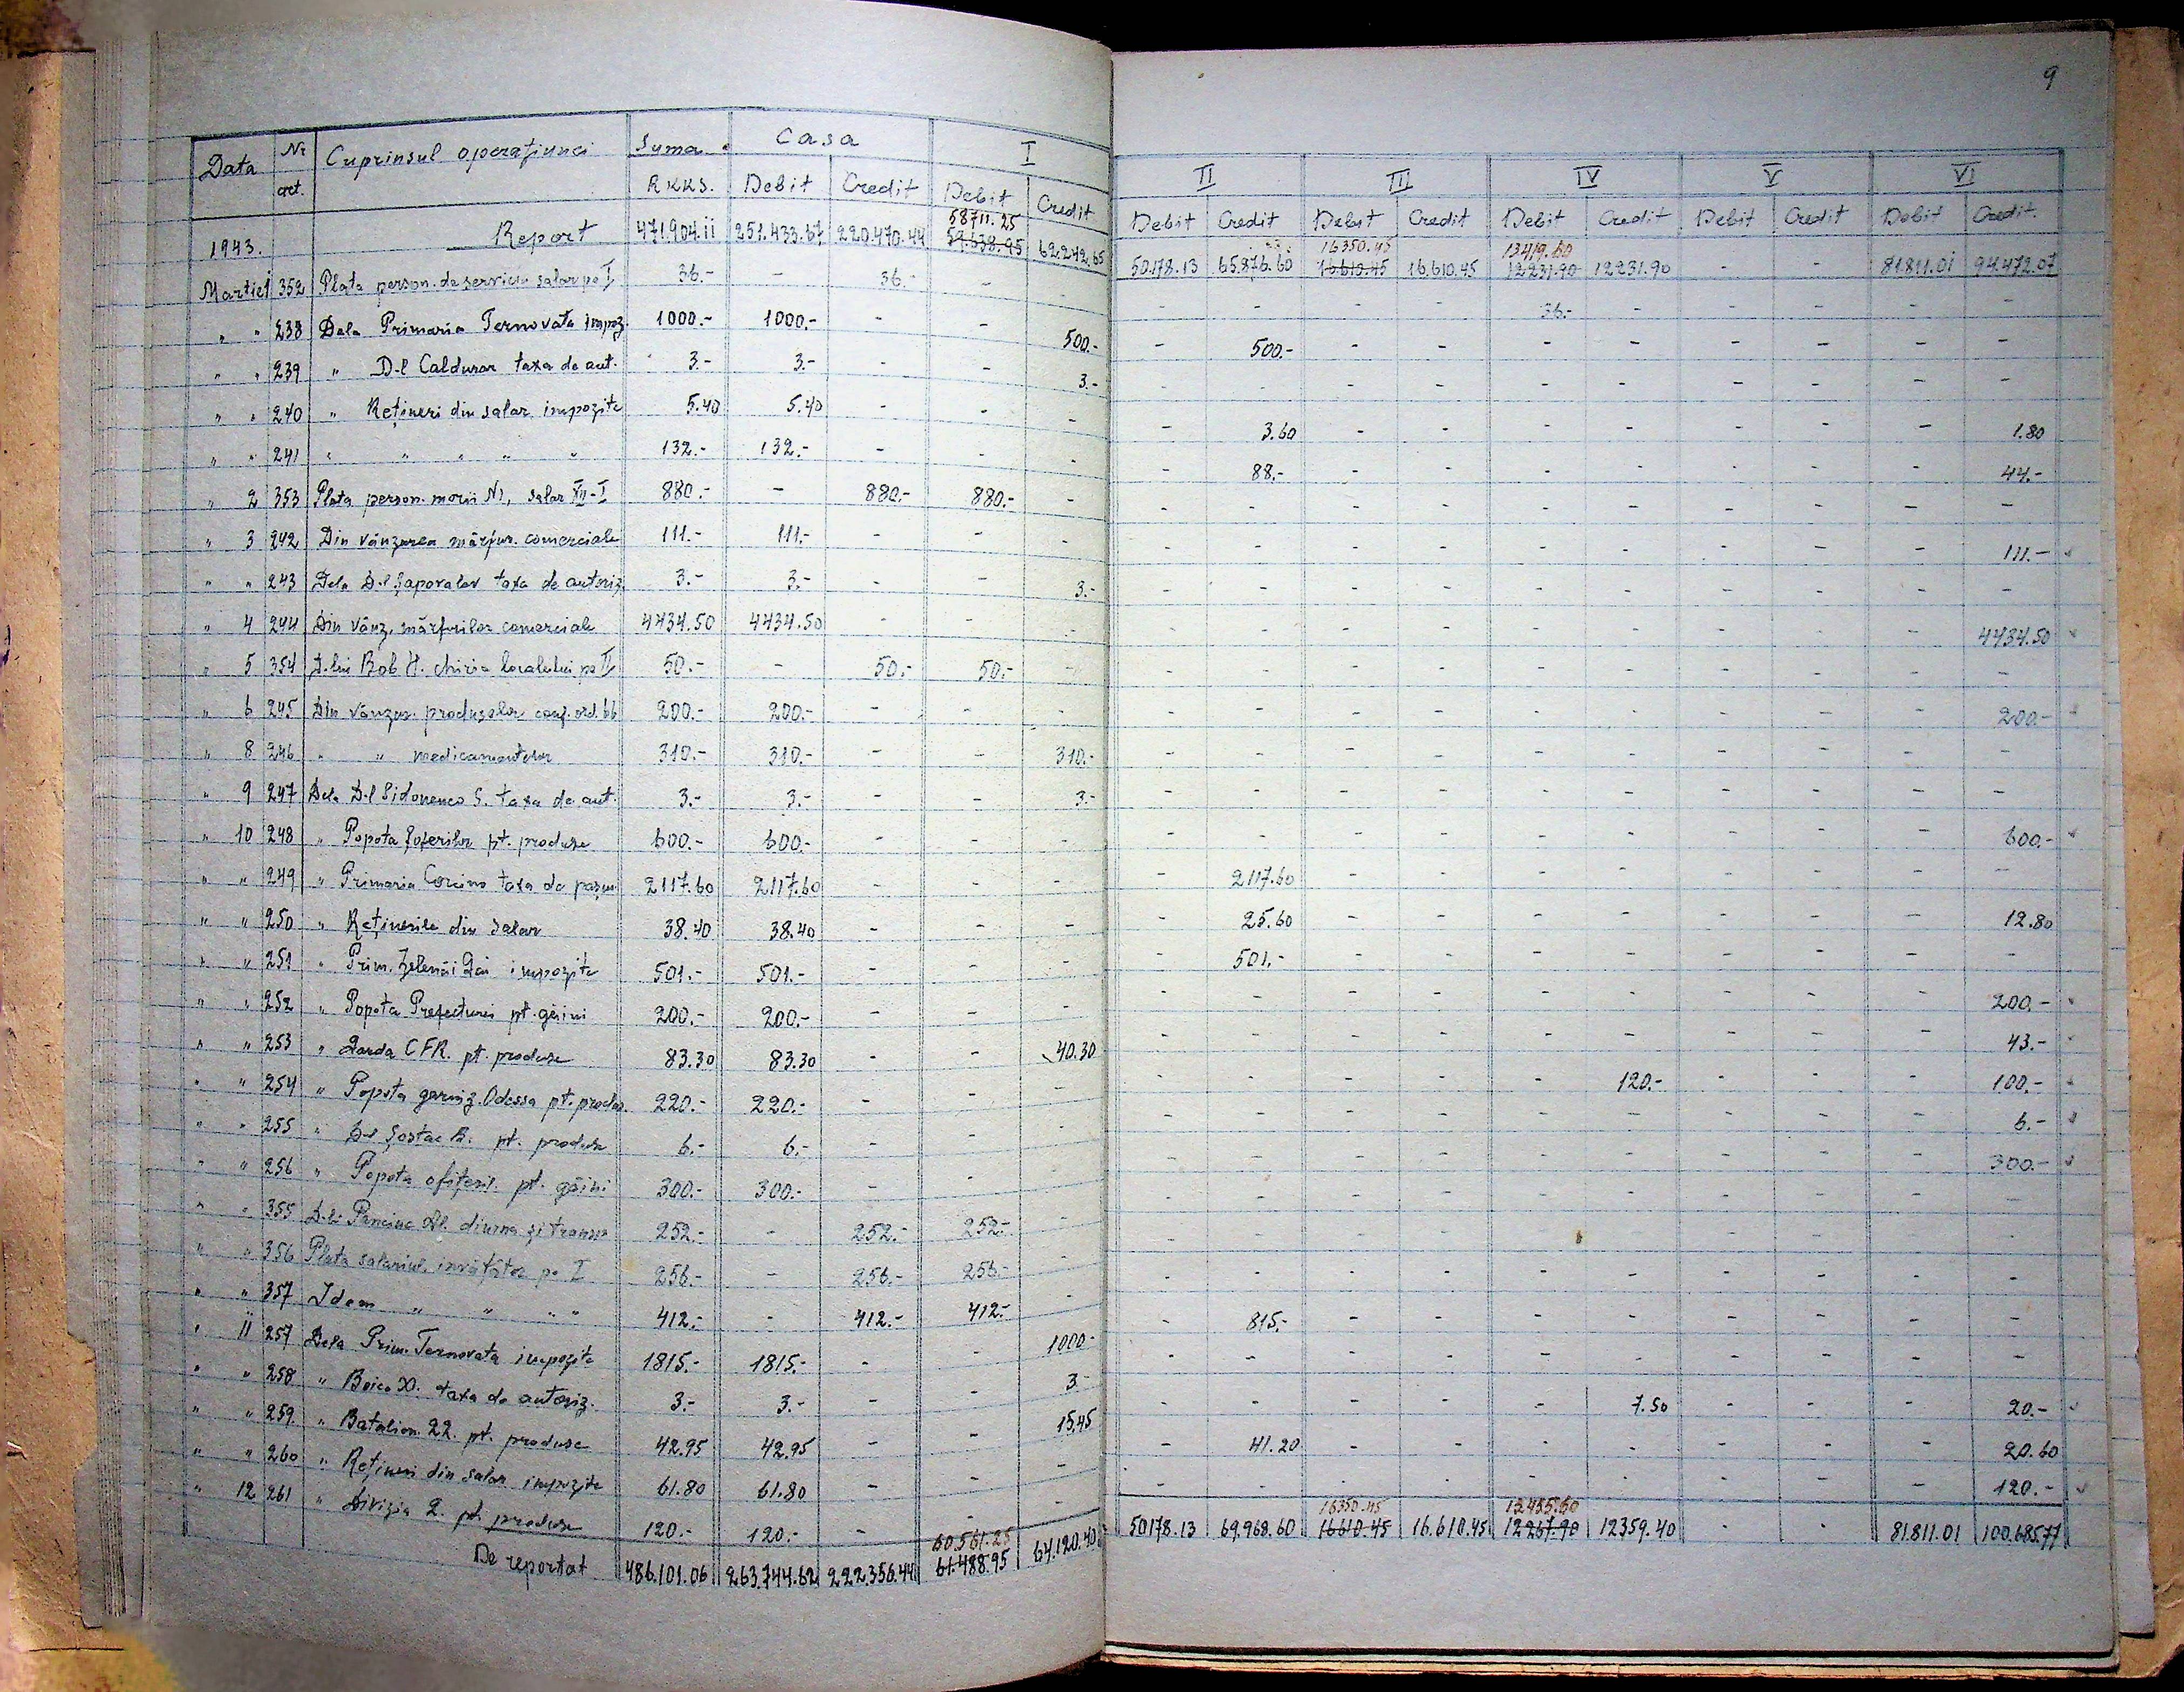 9
Data Nr. art. Cuprinsul operațiunei Suma RKKS. Casa Debit Credit I Debit Credit II Debit Credit III Debit Credit IV Debit Credit V Debit Credit VI Debit Credit.
58711.25 16350.45 13419.60
1943. Report 471.904.11 251.433.67 220.470.44 59.638.95 62.242.65 50.178.13 65.876.60 16.610.45 16.610.45 12231.90 12231.90 - - 81.811.01 94.472.07
Martie 1 352 Plata person. de serviciu salar pe I 36.- - 36.- - - - - - - 36.- - - - - -
" " 238 Dela Primaria Ternovata impoz. 1000.- 1000.- - - 500.- - 500.- - - - - - - - -
" " 239 " D-l Caldurar taxa de aut. 3.- 3.- - - 3.- - - - - - - - - - -
" " 240 " Rețineri din salar impozite 5.40 5.40 - - - - 3.60 - - - - - - - 1.80
" " 241 " " " " " 132.- 132.- - - - - 88.- - - - - - - - 44.-
" 2 353 Plata person. morii N1, salar XII-I 880.- - 880.- 880.- - - - - - - - - - - -
" 3 242 Din vânzarea mărfur. comerciale 111.- 111.- - - - - - - - - - - - - 111.-
" " 243 Dela D-l Șaporalov taxa de autoriz. 3.- 3.- - - 3.- - - - - - - - - - -
" 4 244 Din vânz. mărfurilor comerciale 4434.50 4434.50 - - - - - - - - - - - - 4434.50
" 5 354 D-lui Bob H. chiria localului pe II 50.- - 50.- 50.- - - - - - - - - - - -
" 6 245 Din vânzar. produselor conf. ord. 66 200.- 200.- - - - - - - - - - - - - 200.-
" 8 246 " " medicamentelor 310.- 310.- - - 310.- - - - - - - - - - -
" 9 247 Dela D-l Sidonenco S. taxa de aut. 3.- 3.- - - 3.- - - - - - - - - - -
" 10 248 " Popota șoferilor pt. produse 600.- 600.- - - - - - - - - - - - - 600.-
" " 249 " Primaria Corcino taxa de pașun 2117.60 2117.60 - - - - 2117.60 - - - - - - - -
" " 250 " Reținerile din salar 38.40 38.40 - - - - 25.60 - - - - - - - 12.80
" " 251 " Prim. Zelenâi Gai impozite 501.- 501.- - - - - 501.- - - - - - - - -
" " 252 " Popota Prefecturei pt. găini 200.- 200.- - - - - - - - - - - - - 200.-
" " 253 " Garda CFR. pt. produse 83.30 83.30 - - 40.30 - - - - - - - - - 43.-
" " 254 " Popota garniz. Odessa pt. produs. 220.- 220.- - - - - - - - - 120.- - - - 100.-
" " 255 " D-l Șostac B. pt. produse 6.- 6.- - - - - - - - - - - - - 6.-
" " 256 " Popota ofițeril. pt. găini 300.- 300.- - - - - - - - - - - - - 300.-
" " 355 D-lui Panciuc Al. diurna și transp. 252.- - 252.- 252.- - - - - - - - - - - -
" " 356 Plata salariul învățător pe I 256.- - 256.- 256.- - - - - - - - - - - -
" " 357 Idem " " " " 412.- - 412.- 412.- - - - - - - - - - - -
" 11 257 Dela Prim. Ternovata impozite 1815.- 1815.- - - 1000.- - 815.- - - - - - - - -
" " 258 " Boico D. taxa de autoriz. 3.- 3.- - - 3.- - - - - - - - - - -
" " 259 " Batalion 22. pt. produse 42.95 42.95 - - 15.45 - - - - - 7.50 - - - 20.-
" " 260 " Rețineri din salar impozite 61.80 61.80 - - - - 41.20 - - - - - - - 20.60
" 12 261 " Divizia 2. pt. produse 120.- 120.- - - - - - - - - - - - - 120.-
60.561.25 16350.45 13455.60
De reportat 486.101.06 263.744.62 222.356.44 61.488.95 64.120.40 50178.13 69.968.60 16610.45 16.610.45 12267.90 12359.40 - - 81.811.01 100.685.77